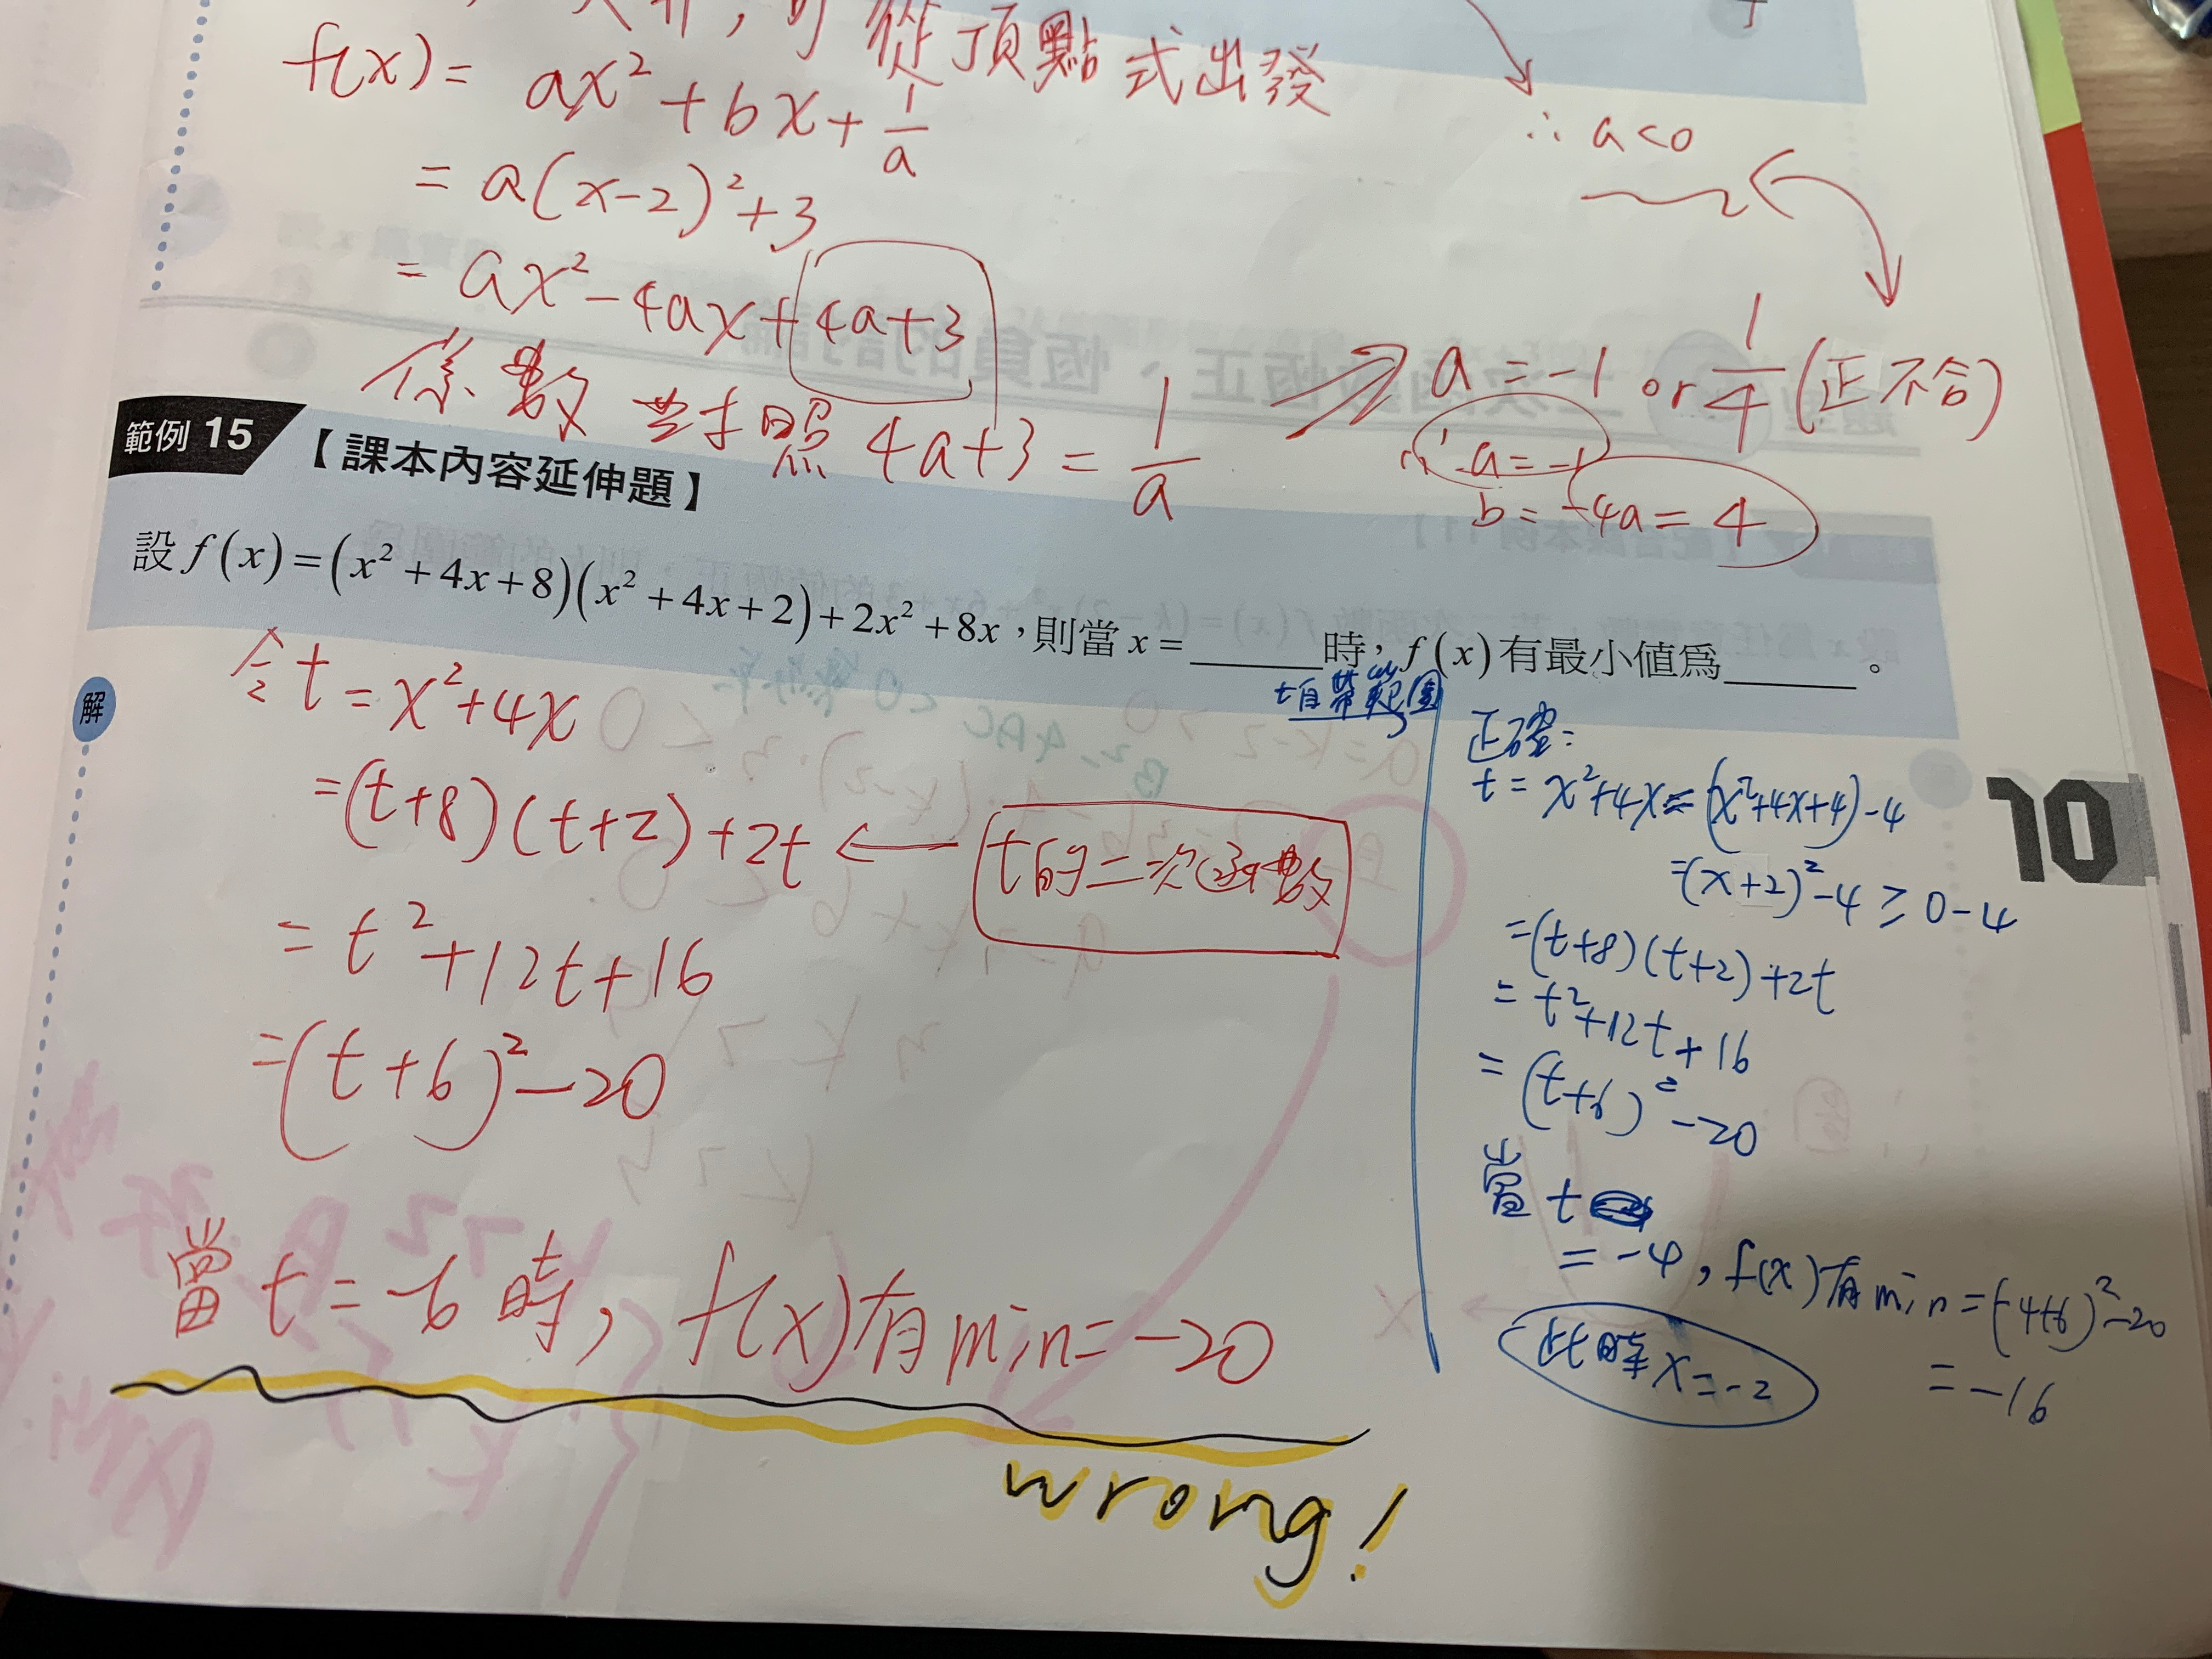 可從頂點式出發
f(x) = ax² + bx + 1/a
= a(x-2)² + 3
= ax² - 4ax + 4a+3
係數對照 4a+3 = 1/a
∴ a<0
⇒ a = -1 or 1/4 (正不合)
∴ a = -1
b = -4a = 4
範例 15 【課本內容延伸題】
設 f(x) = (x² + 4x + 8)(x² + 4x + 2) + 2x² + 8x，則當 x = ______ 時，f(x) 有最小值為______。
解
令 t = x² + 4x
= (t+8)(t+2) + 2t ← t的二次函數
= t² + 12t + 16
= (t+6)² - 20
當 t = -6 時, f(x)有min = -20
wrong!
t自帶範圍
正確:
t = x²+4x = (x²+4x+4) - 4
= (x+2)² - 4 ≥ 0 - 4
= (t+8)(t+2) + 2t
= t² + 12t + 16
= (t+6)² - 20
當 t
= -4, f(x)有min = (-4+6)² - 20
= -16
此時 x = -2
10